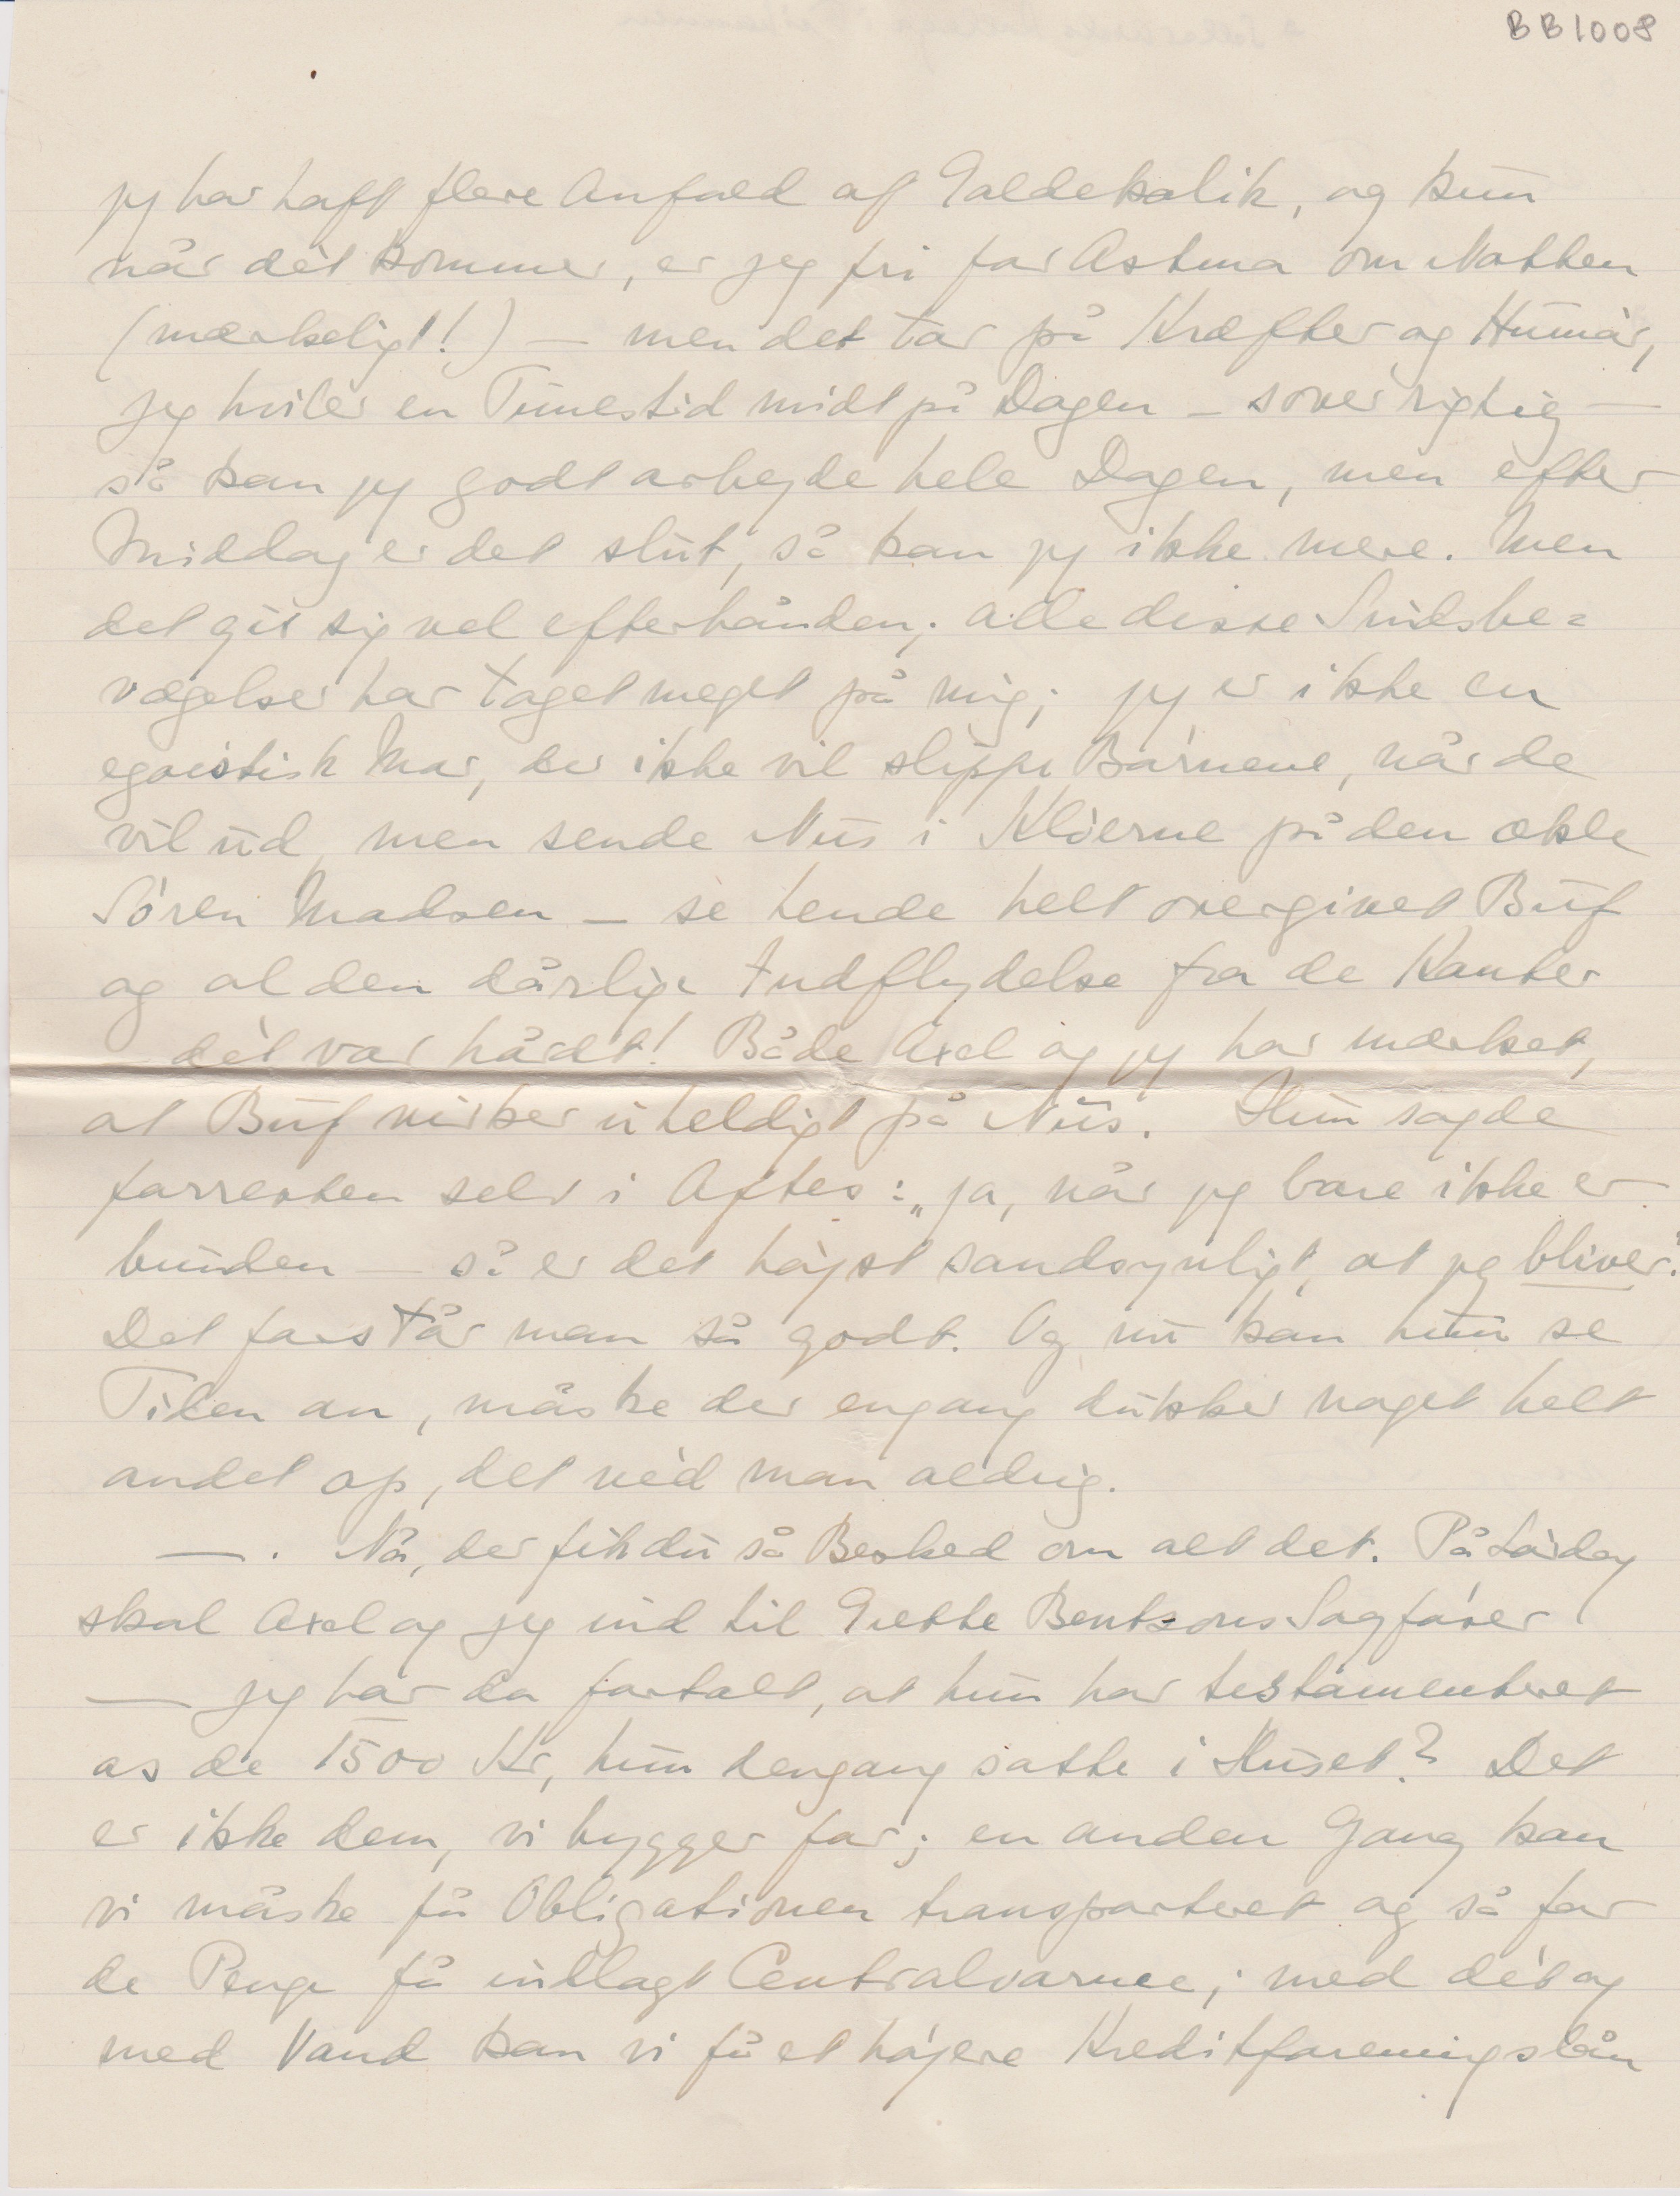 BB1008
jeg har haft flere Anfald af Galdekolik, og kun
når dèt kommer, er jeg fri for Astma om Natten
(mærkeligt!) — men det tar på Kræfter og Humør,
jeg hviler en Timestid midt på Dagen – sover rigtig —
så kan jeg godt arbejde hele Dagen, men efter
Middag er det slut, så kan jeg ikke mere. Men
det gir sig vel efterhånden; alle disse Sindsbe=
vægelser har taget meget på mig; jeg er ikke en
egoistisk Mor, der ikke vil slippe Børnene, når de
vil ud, men sende Nus i Kløerne på den ækle
Søren Madsen – se hende helt overgivet Buf
og al den dårlige Indflydelse fra de Kanter
– dèt var hårdt! Både Axel og jeg har mærket,
at Buf virker uheldigt på Nus. Hun sagde
forresten selv i Aftes: „ja, når jeg bare ikke er
bunden — så er det højst sandsynligt, at jeg bliver."
Det forstår man så godt. Og nu kan hun se
Tiden an, måske der engang dukker noget helt
andet op, det vèd man aldrig.
—. Nå, der fik du så Besked om alt det. På Lørdag
skal Axel og jeg ind til Grethe Bentzons Sagfører
— jeg har da fortalt, at hun har testamenteret
os de 1500 Kr, hun dengang satte i Huset? Det
er ikke dem, vi bygger for; en anden Gang kan
vi måske få Obligationen transporteret og så for
de Penge få indlagt Centralvarme; med dèt og
med Vand kan vi få et højere Kreditforeningslån